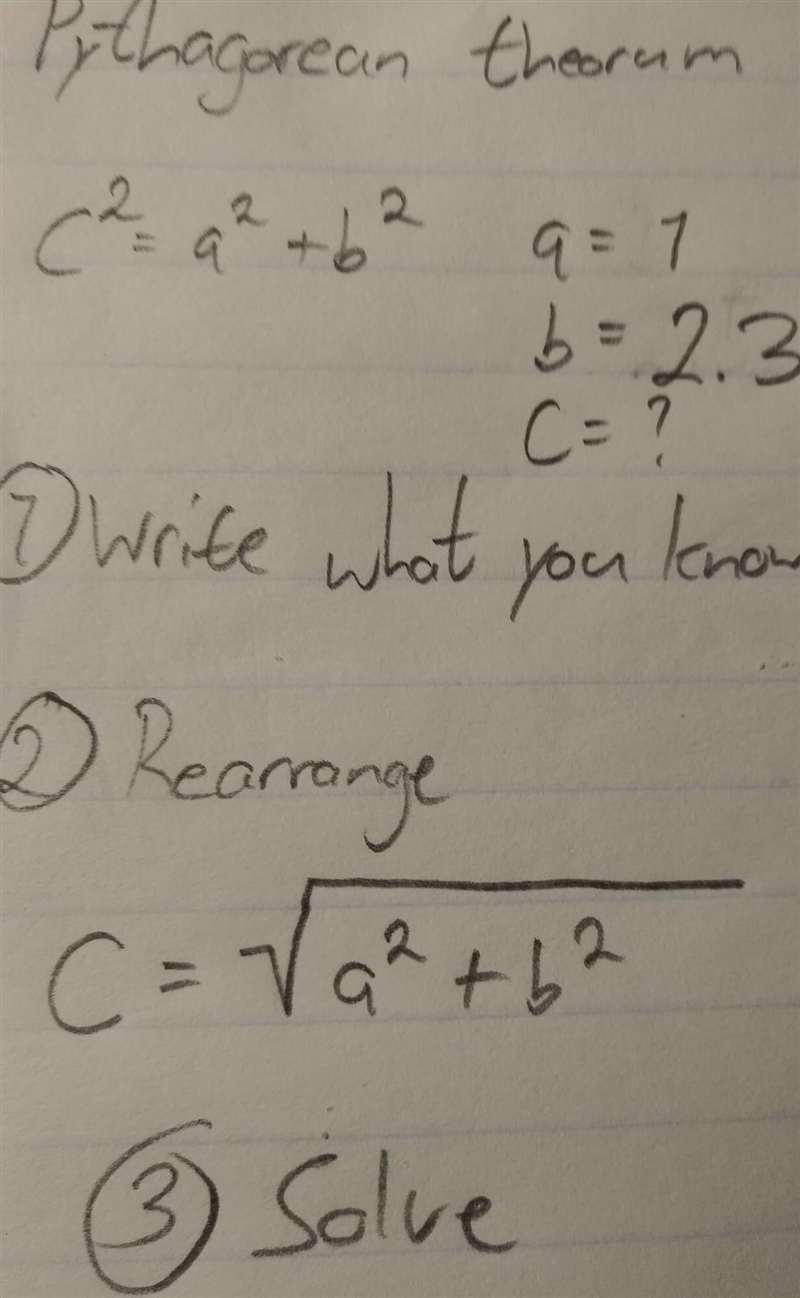 Pythagorean theorum
C² = a² + b² a = 1
b = 2.3
C = ?
① Write what you know
② Rearrange
C = √a² + b²
③ Solve